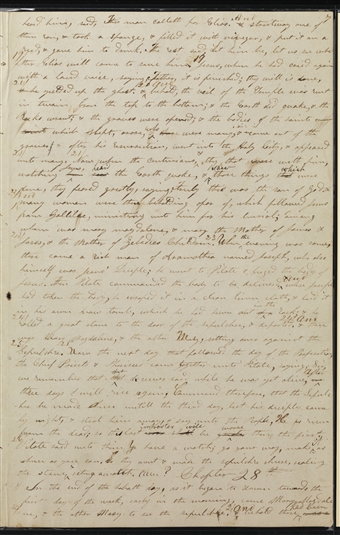 heard him, said, This man calleth for Elias. And straitway one of
them ran, & took a spunge, & filled it with vinegar, & put it on a
reed, & gave him to drink. The rest said, let him be, let us see whether
Elias will come to save him. Jesus, when he had cried again
with a loud voice, saying, Father, it is finished, thy will is done,
yielded up the ghost & behold, the veil of the Temple was rent
in twain, from the top to the bottom; & the Earth did quake, & the
Rocks rent; & the graves were opened; & the bodies of the saints
which slept, arose, who were many, & came out of the
graves after his resurrection, went into the Holy City, & appeared
unto many. Now when the centurion, & they that were with him,
watching Jesus, saw the Earth quake, & those things which were
done, they feared greatly, saying, truly this was the son of God. &
many women were there beholding afar off, which followed Jesus
from Galilee, ministering unto him for his burial; among
whom was mary magdalene, & mary the Mother of James &
Joses, & the Mother of Zebedees Children. When the evening was come,
there came a rich man of Arimathea named joseph, who also
himself was Jesus' Disciple; he went to Pilate & begged the body of
Jesus. Then Pilate commanded the body to be delivered. and when joseph
had taken the body, he wrapped it in a clean linen cloth, & laid it
in his own new tomb, which he had hewn out in the rock; & he
rolled a great stone to the door of the sepulchre, & departed. & there
was Mary Magdalene, & the other Mary, sitting over against the
Sepulchre. Now the next day that followed the day of the Preparation,
the Chief Priests & Pharisees came together unto Pilate, saying, Sir
we remember that that deceiver said while he was yet alive, after
three days I will rise again. Command therefore, that the sepulchre
be made sure untill the third day, lest his disciples come
by night, & steal him away, & say unto the people, He is risen
from the dead; so this last imposture will be worse than the first.
Pilate said unto them, Ye have a watch; go your way, make it as
sure as you can. So they went & made the sepulchre sure, sealing
the stone, & setting a watch. Chapter 28th
In the end of the sabbath day, as it began to dawn towards the
first day of the week, early in the morning, came Mary Magdalene
& the other Mary to see the sepulchre. And behold there had been